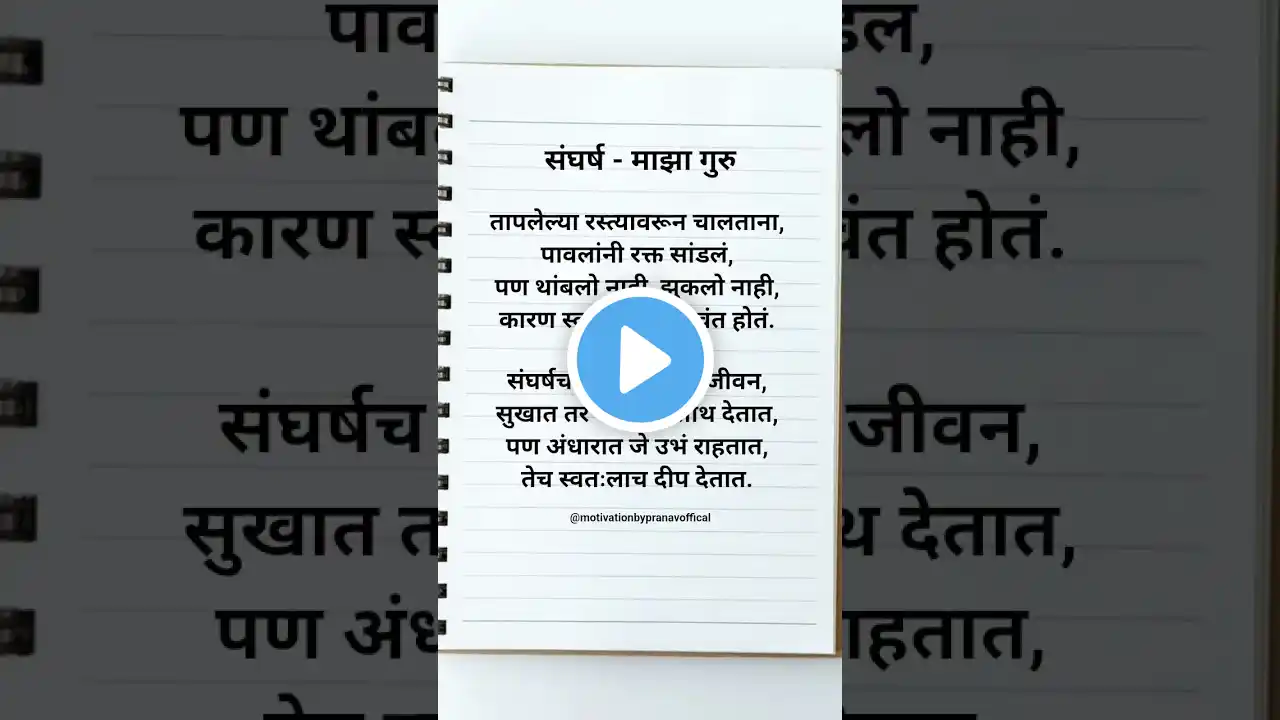 संघर्ष - माझा गुरु
तापलेल्या रस्त्यावरून चालताना,
पावलांनी रक्त सांडलं,
पण थांबलो नाही, झुकलो नाही,
कारण वंत होतं.
संघर्षच जीवन,
सुखात तर देतात,
पण अंधारात जे उभं राहतात,
तेच स्वतःलाच दीप देतात.
@motivationbypranavoffical